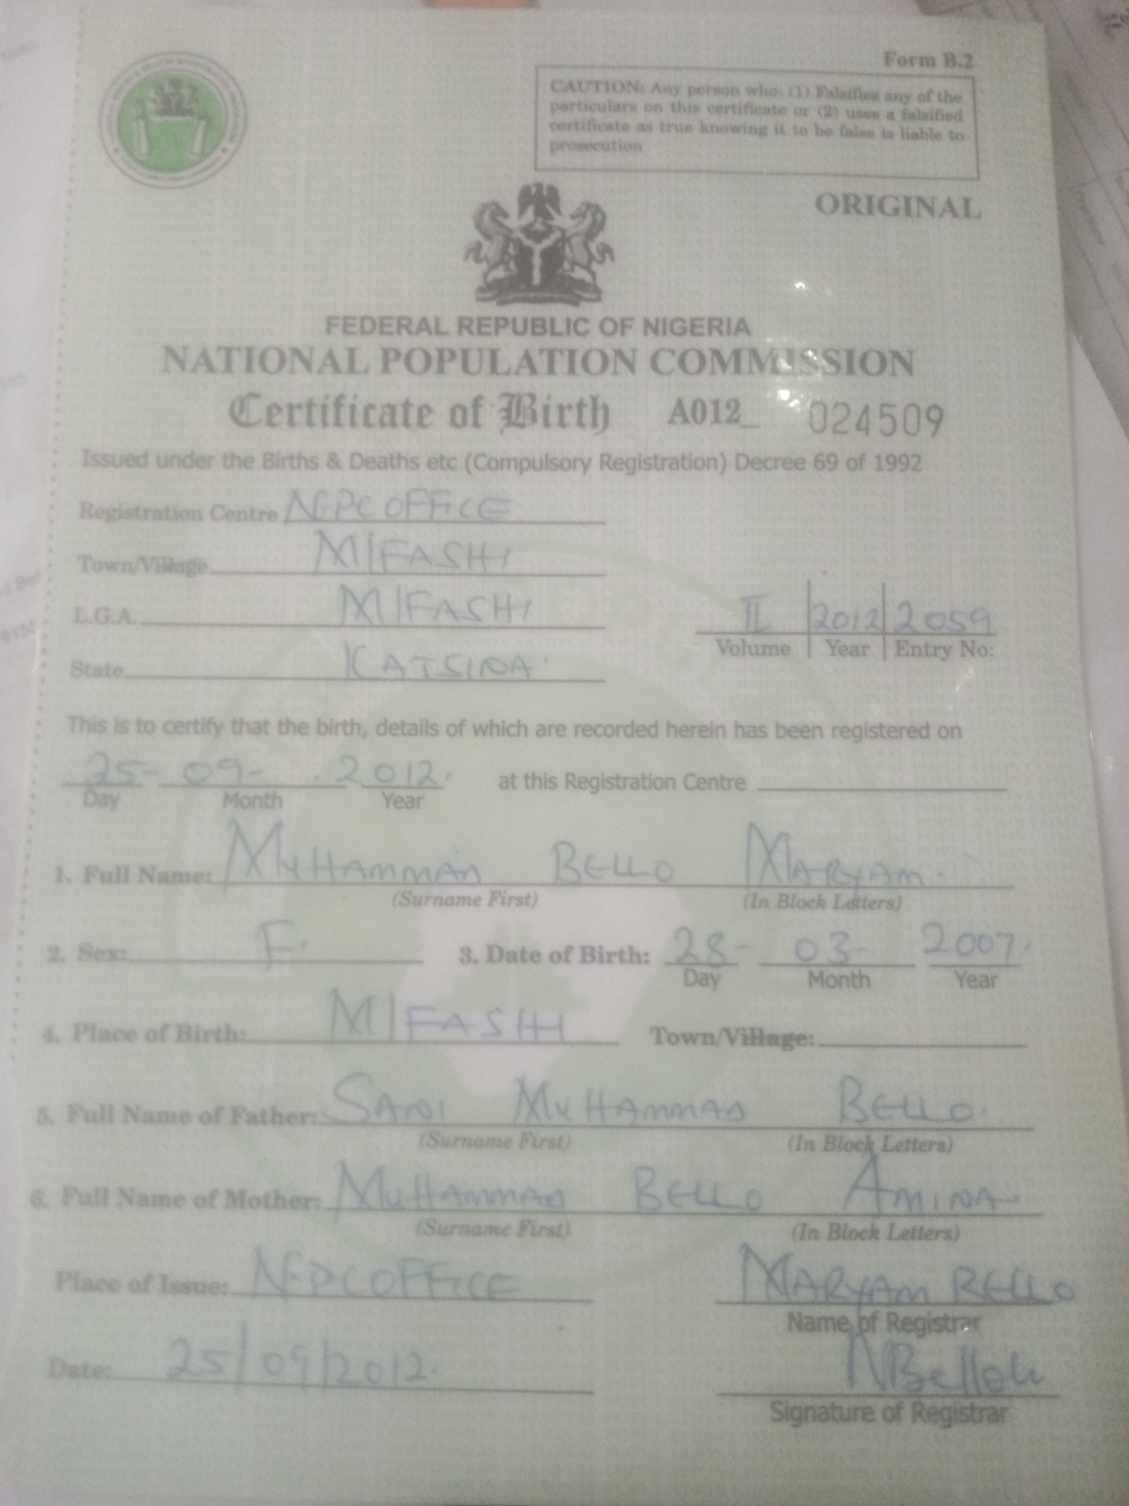 Form B.2
CAUTION: Any person who: (1) Falsifies any of the
particulars on this certificate or (2) uses a falsified
certificate as true knowing it to be false is liable to
prosecution
ORIGINAL
FEDERAL REPUBLIC OF NIGERIA
NATIONAL POPULATION COMMISSION
Certificate of Birth A012_ 024509
Issued under the Births & Deaths etc (Compulsory Registration) Decree 69 of 1992
Registration Centre NPC OFFICE
Town/Village M/FASHI
L.G.A. M/FASHI
II 2012 2059
Volume Year Entry No:
State KATSINA
This is to certify that the birth, details of which are recorded herein has been registered on
25- 09- 2012. at this Registration Centre
Day Month Year
1. Full Name: MUHAMMAD BELLO MARYAM.
(Surname First) (In Block Letters)
2. Sex: F. 3. Date of Birth: 28- 03- 2007.
Day Month Year
4. Place of Birth: M/FASHI Town/Village:
5. Full Name of Father: SANI MUHAMMAD BELLO.
(Surname First) (In Block Letters)
6. Full Name of Mother: MUHAMMAD BELLO AMINA
(Surname First) (In Block Letters)
Place of Issue: NPC OFFICE MARYAM BELLO
Name of Registrar
Date: 25/09/2012.
Signature of Registrar